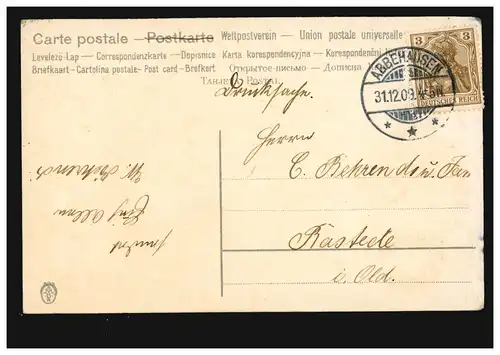 Carte postale – Postkarte Weltpostverein – Union postale universelle
Levelezö-Lap – Correspondenzkarte – Dopisnice – Karta korespondencyjna – Korespondenční
Briefkaart – Cartolina postale – Post card – Brefkort – Открытое-письмо – Дописна
Tarjeta Postal
3 3
ABBEHAUSEN
31.12.09. 4-5N.
DEUTSCHES REICH
Drucksache.
Herrn
C. Behrends u. Fam
Rastede
i. Old.